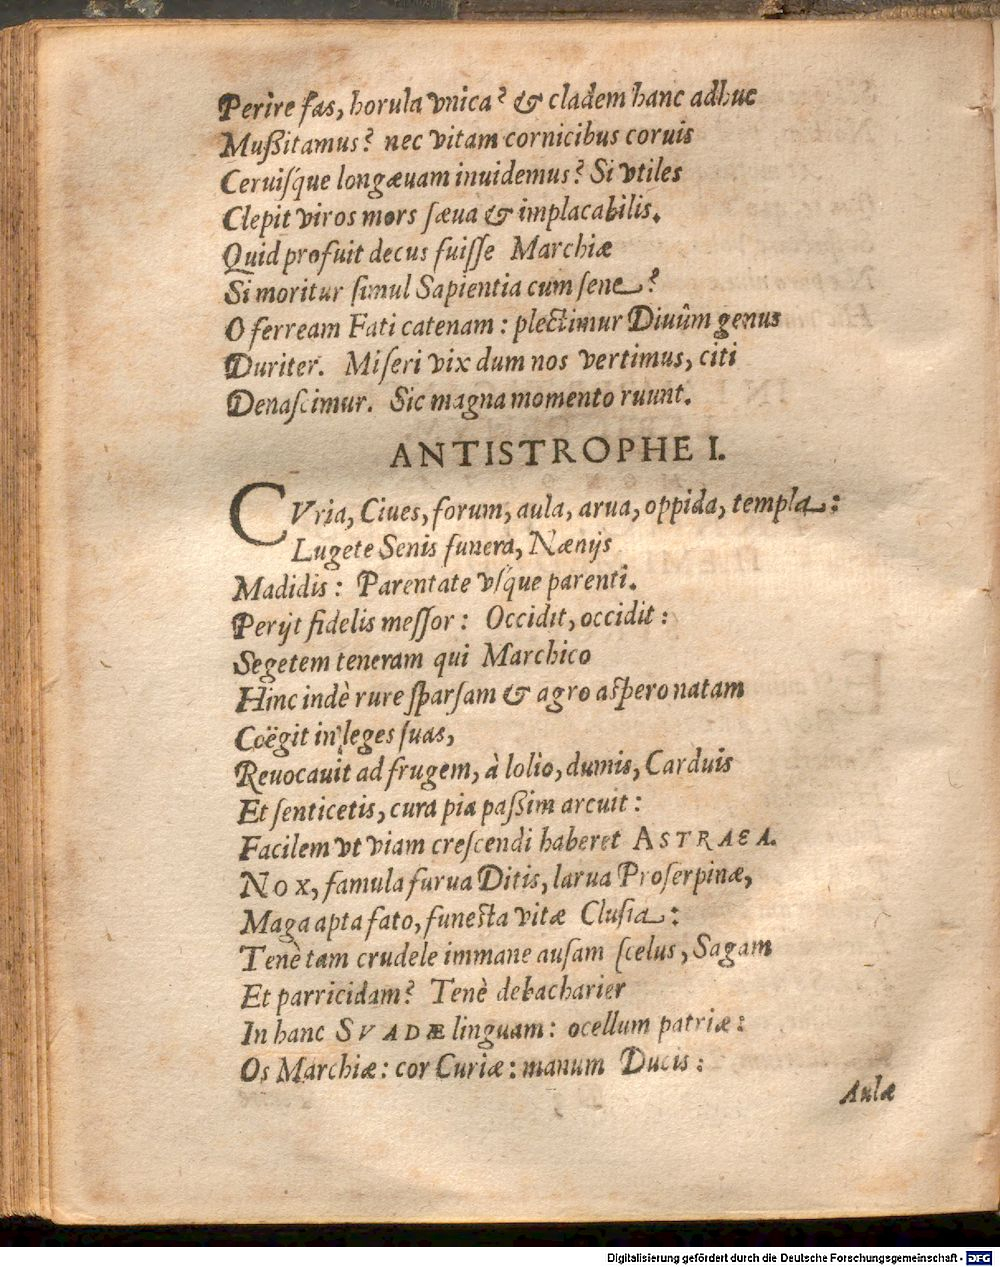 Perire fas, horula vnica? & cladem hanc adhuc
Mußitamus? nec vitam cornicibus coruis
Ceruisq́ue longæuam inuidemus? Si vtiles
Clepit viros mors sæua & implacabilis.
Quid profuit decus fuisse Marchiæ
Si moritur simul Sapientia cum sene?
O ferream Fati catenam: plectimur Diuûm genus
Duriter. Miseri vix dum nos vertimus, citi
Denascimur. Sic magna momento ruunt.
ANTISTROPHE I.
CVria, Ciues, forum, aula, arua, oppida, templa:
Lugete Senis funera, Nænijs
Madidis: Parentate vsq́ue parenti.
Perijt fidelis messor: Occidit, occidit:
Segetem teneram qui Marchico
Hinc indè rure sparsam & agro aspero natam
Coëgit in leges suas,
Reuocauit ad frugem, à lolio, dumis, Carduis
Et senticetis, cura pia paßim arcuit:
Facilem vt viam crescendi haberet ASTRAEA.
NOX, famula furua Ditis, larua Proserpinæ,
Maga apta fato, funesta vitæ Clusia:
Tenè tam crudele immane ausam scelus, Sagam
Et parricidam? Tenè debacharier
In hanc SVADÆ linguam: ocellum patriæ:
Os Marchiæ: cor Curiæ: manum Ducis:
Aulæ
Digitalisierung gefördert durch die Deutsche Forschungsgemeinschaft - DFG